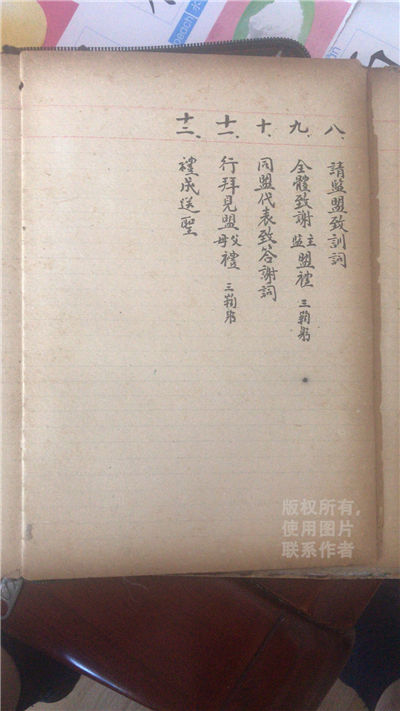 八、請监盟致訓詞
九、全體致謝主监盟禮 三鞠躬
十、同盟代表致答謝詞
十一、行拜見盟父母禮 三鞠躬
十二、禮成送聖
版权所有,
使用图片
联系作者